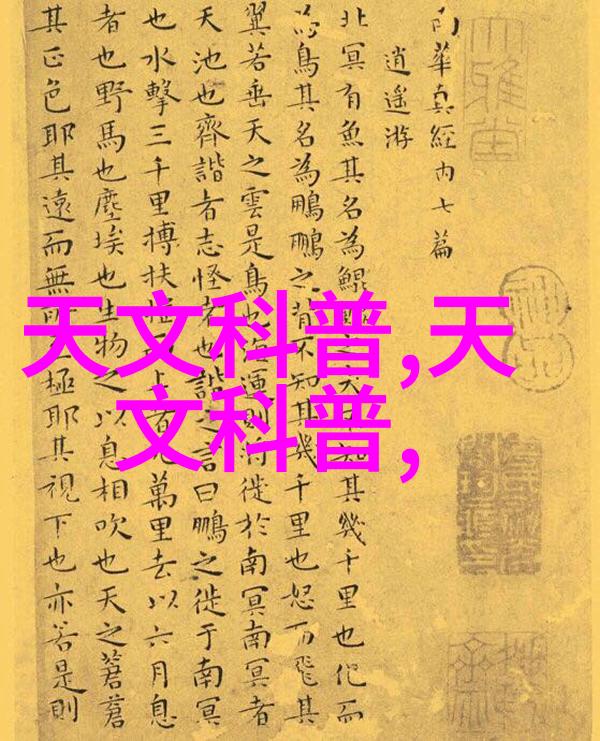 南華真經內七篇
逍遙游
北冥有魚其名為鯤鯤之大不知其幾千里也化而
為鳥其名為鵬鵬之背不知其幾千里也怒而飛其
翼若垂天之雲是鳥也海運則將徙於南冥南冥者
天池也齊諧者志怪者也諧之言曰鵬之徙于南冥
也水擊三千里搏扶搖而上者九萬里去以六月息
者也野馬也塵埃也生物之以息相吹也天之蒼蒼
其正色耶其遠而無所至極耶其視下也亦若是則
天文科普,天
文科普,
大雅堂
神品